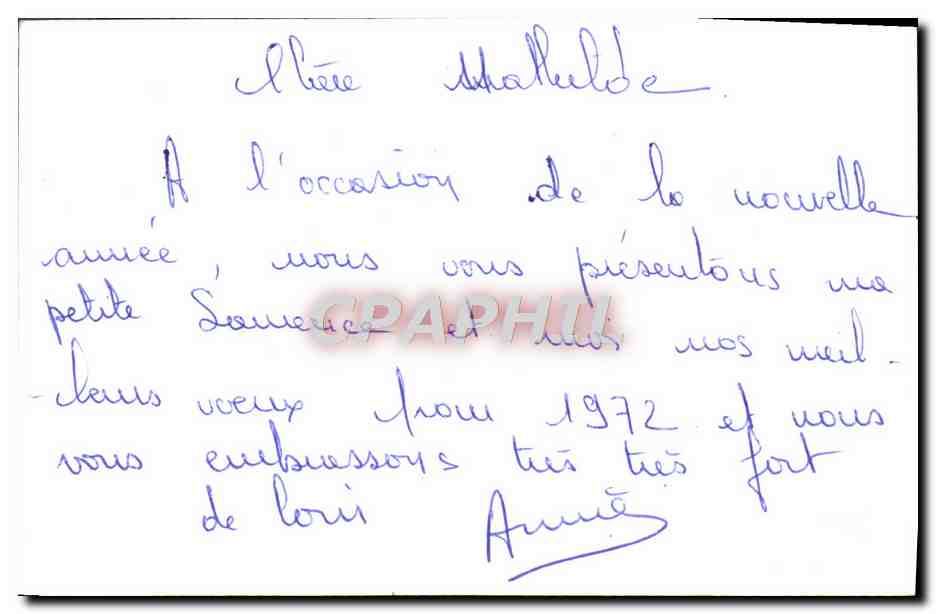 Chère Mathilde
A l'occasion de la nouvelle
année, nous vous présentons ma
petite et moi nos meil-
-leurs voeux pour 1972 et nous
vous embrassons très très fort
de loin Annie
CPAPHIL